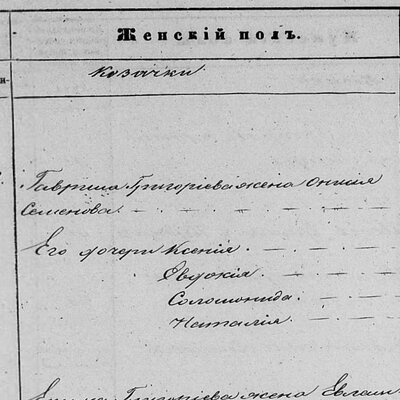 Женскій полъ.
Козачки
Гаврила Григоріева жена
Семенова
Его дочери Ксенія
Овдокія
Соломонида
Наталія
Григоріева жена